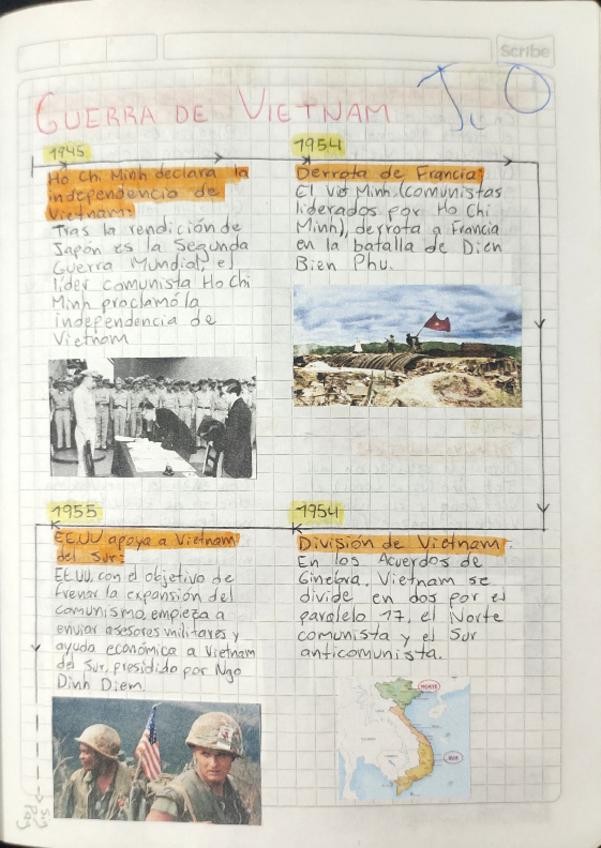 Scribe
GUERRA DE VIETNAM
1945
Ho Chi Minh declara la
independencia de
Vietnam:
Tras la rendición de
Japón es la Segunda
Guerra Mundial, el
líder comunista Ho Chi
Minh proclamó la
independencia de
Vietnam
1954
Derrota de Francia:
El Viet Minh (comunistas
liderados por Ho Chi
Minh), derrota a Francia
en la batalla de Dien
Bien Phu.
1954
División de Vietnam.
En los Acuerdos de
Ginebra, Vietnam se
divide en dos por el
paralelo 17, el Norte
comunista y el Sur
anticomunista.
NORTE
SUR
1955
EE.UU apoya a Vietnam
del Sur:
EE.UU, con el objetivo de
frenar la expansión del
comunismo, empieza a
enviar asesores militares y
ayuda económica a Vietnam
del Sur, presidido por Ngo
Dinh Diem.
Sig
Pag